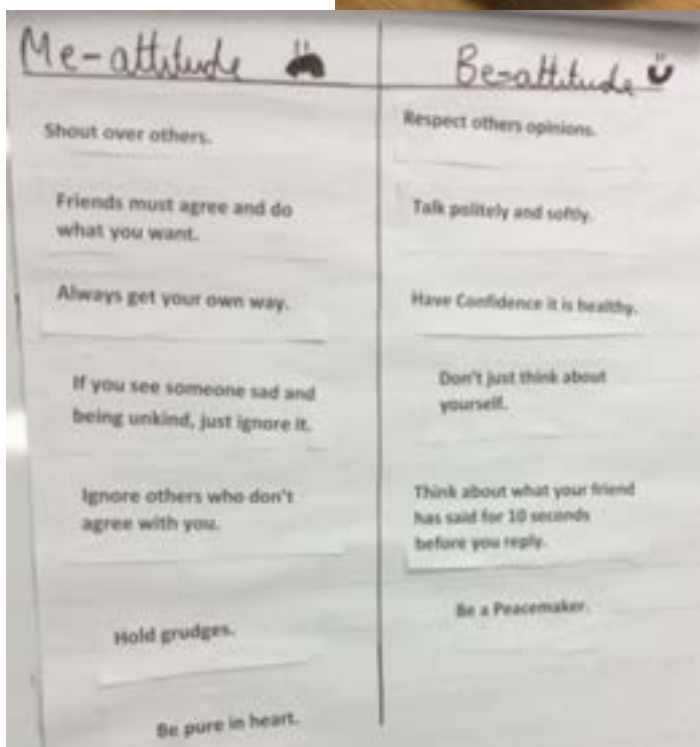 Me-attitude
Shout over others.
Friends must agree and do
what you want.
Always get your own way.
If you see someone sad and
being unkind, just ignore it.
Ignore others who don't
agree with you.
Hold grudges.
Be pure in heart.
Be-attitude
Respect others opinions.
Talk politely and softly.
Have Confidence it is healthy.
Don't just think about
yourself.
Think about what your friend
has said for 10 seconds
before you reply.
Be a Peacemaker.